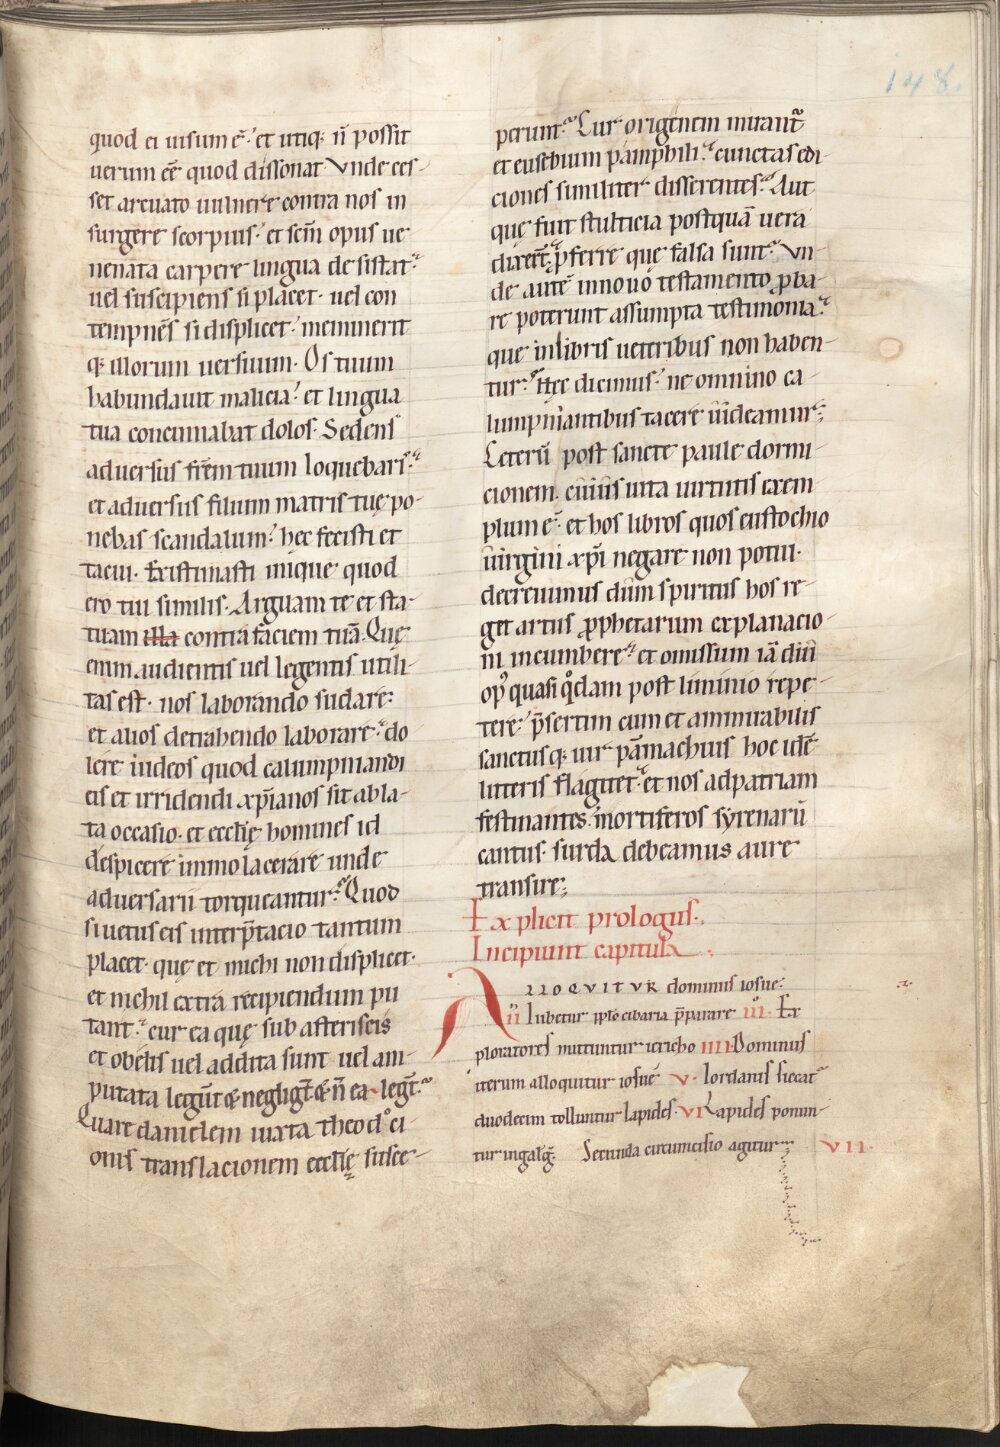 148.
quod ei uisum ē. et utiq; ñ possit
uerum eē quod dissonat. Vnde ces-
set arcuato uulnere contra nos in
surgere scorpius. et scm̄ opus ue
nenata carpere lingua desistat.
uel suscipiens si placet. uel con
tempnens si displicet. meminerit
q; illorum uersuum. Os tuum
habundauit malicia. et lingua
tua concinnabat dolos. Sedens
aduersus frēm tuum loquebaris.
et aduersus filium matris tuę po-
nebas scandalum. hec fecisti et
tacui. Existimasti inique quod
ero tui similis. Arguam te et sta-
tuam illa contra faciem tuā. Que
enim audientis uel legentis utili-
tas est. nos laborando sudare.
et alios detrahendo laborare. do
lere iudeos quod calumpniandi
eis et irridendi xp̄ianos sit abla-
ta occasio. et ecclię homines id
despicere immo lacerare unde
aduersarii torqueantur. Quod
si uetus eis interp̄tacio tantum
placet. quę et michi non displicet.
et nichil extra recipiendum pu
tant. cur ea quę sub asteriscis
et obelis uel addita sunt uel am-
putata legūt & negligt̄ & ñ ea legt̄.
Quare danielem iuxta theodoci-
onis translacionem ecclię susce-
perunt. Cur origenem mirant̄
et eusebium pamphili. cunctas edi-
ciones similiter disserentes. Aut
quę fuit stulticia postquā uera
dixert̄. p̄ferre que falsa sunt. Vn-
de autē in nouo testamento proba-
re poterunt assumpta testimonia.
que in libris ueteribus non haben-
tur. Hęc dicimus. ne omnino ca-
lumpniantibus tacere uideamur.
Ceterū post sancte paule dormi-
cionem. cuius uita uirtutis exem
plum ē. et hos libros quos eustochio
uirgini xp̄i negare non potui.
decreuimus dum spiritus hos re-
get artus prophetarum explanacio-
ni incumbere. et omissum iā diu
op quasi qdam post liminio repe-
tere. p̄sertim cum et ammirabilis
sanctusq; uir pāmachius hoc idē
litteris flagitet. et nos ad patriam
festinantes. mortiferos syrenarū
cantus. surda debeamus aure
transire;
Explicit prologus.
Incipiunt capitula.
ALLOQVITVR dominus iosue.
II Iubetur pplo cibaria p̄parare. III. Ex
ploratores mittuntur iericho IIII. Dominus
iterum alloquitur iosue V. Iordanis siccat̄
duodecim tolluntur lapides. VI Lapides ponun-
tur in galg. Secunda circumcisio agitur VII